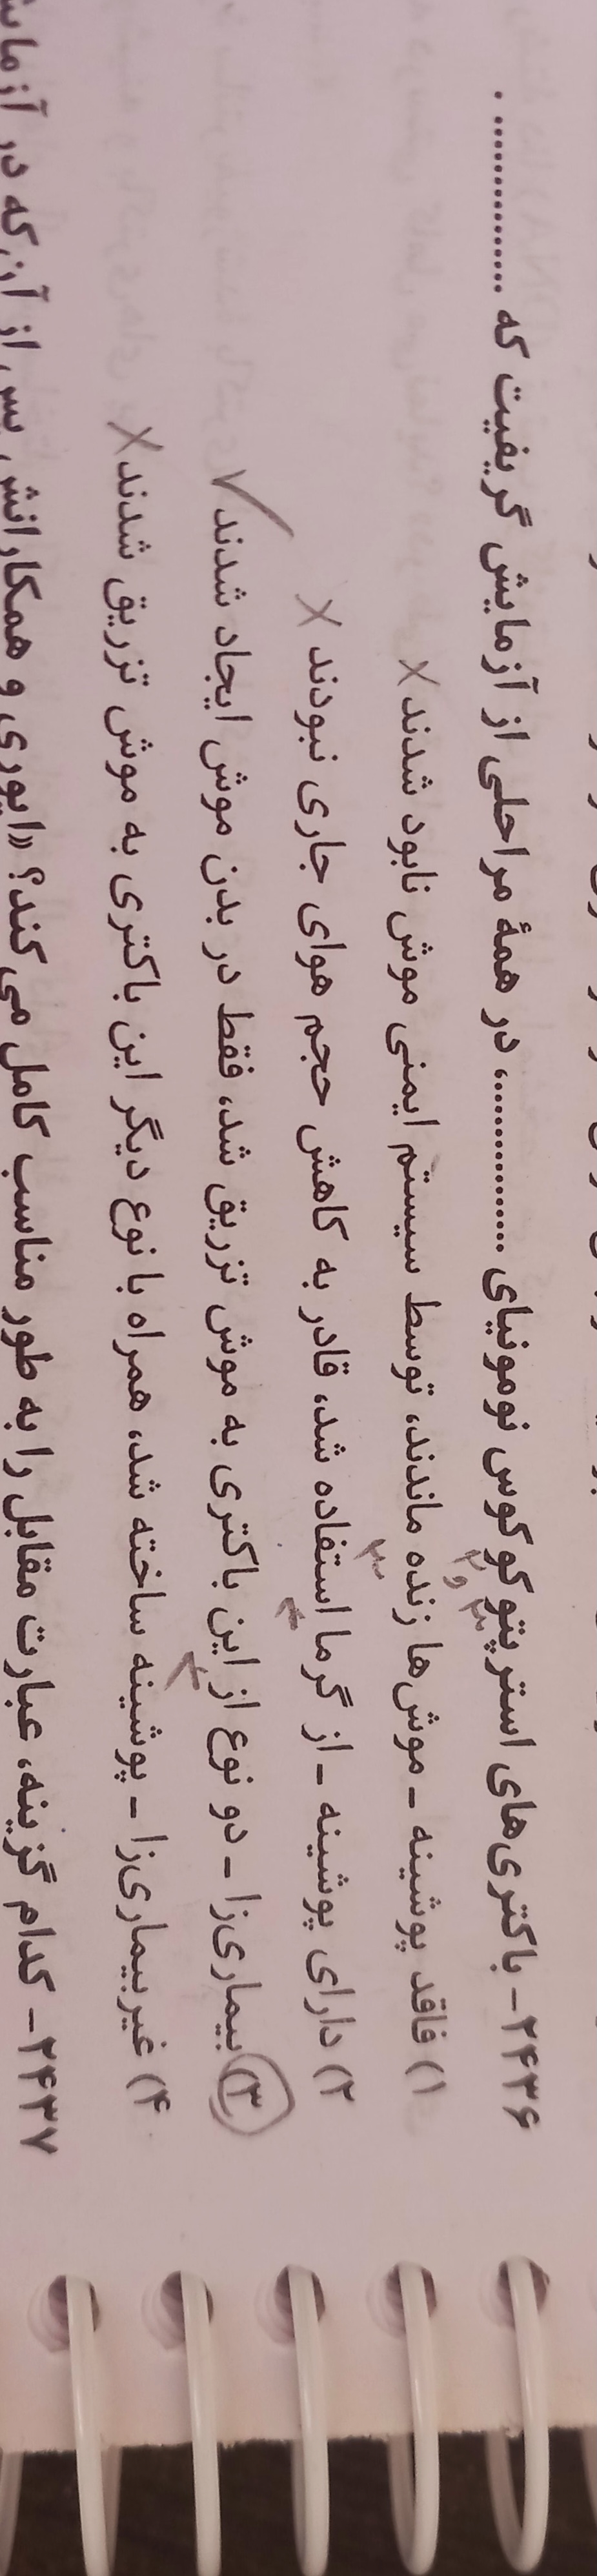 ۲۴۳۶- باکتری‌های استرپتوکوکوس نومونیای ................، در همهٔ مراحلی از آزمایش گریفیت که ................ .
۱) فاقد پوشینه - موش‌ها زنده ماندند، توسط سیستم ایمنی موش نابود شدند ×
۲) دارای پوشینه - از گرما استفاده شد، قادر به کاهش حجم هوای جاری نبودند ×
۳) بیماری‌زا - دو نوع از این باکتری به موش تزریق شد، فقط در بدن موش ایجاد شدند ✓
۴) غیربیماری‌زا - پوشینه ساخته شد، همراه با نوع دیگر این باکتری به موش تزریق شدند ×
۲۴۳۷- کدام گزینه، عبارت مقابل را به طور مناسب کامل می‌کند؟ «ایوری و همکارانش پس از آن که در